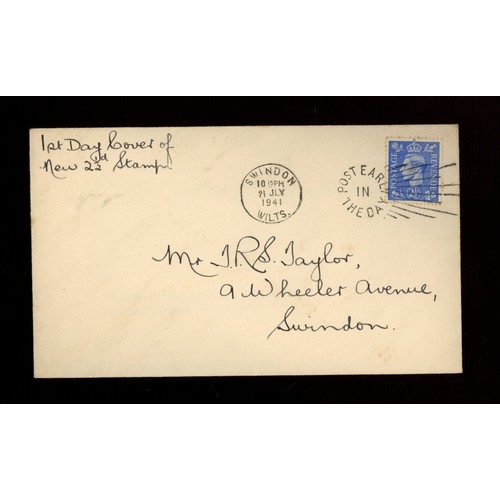 1st Day Cover of
New 2½d Stamp.
SWINDON
10 15PM
21 JLY
1941
WILTS.
POST EARLY
IN
THE DAY
POSTAGE
REVENUE
Mr T.R.S. Taylor,
9 Wheeler Avenue,
Swindon.